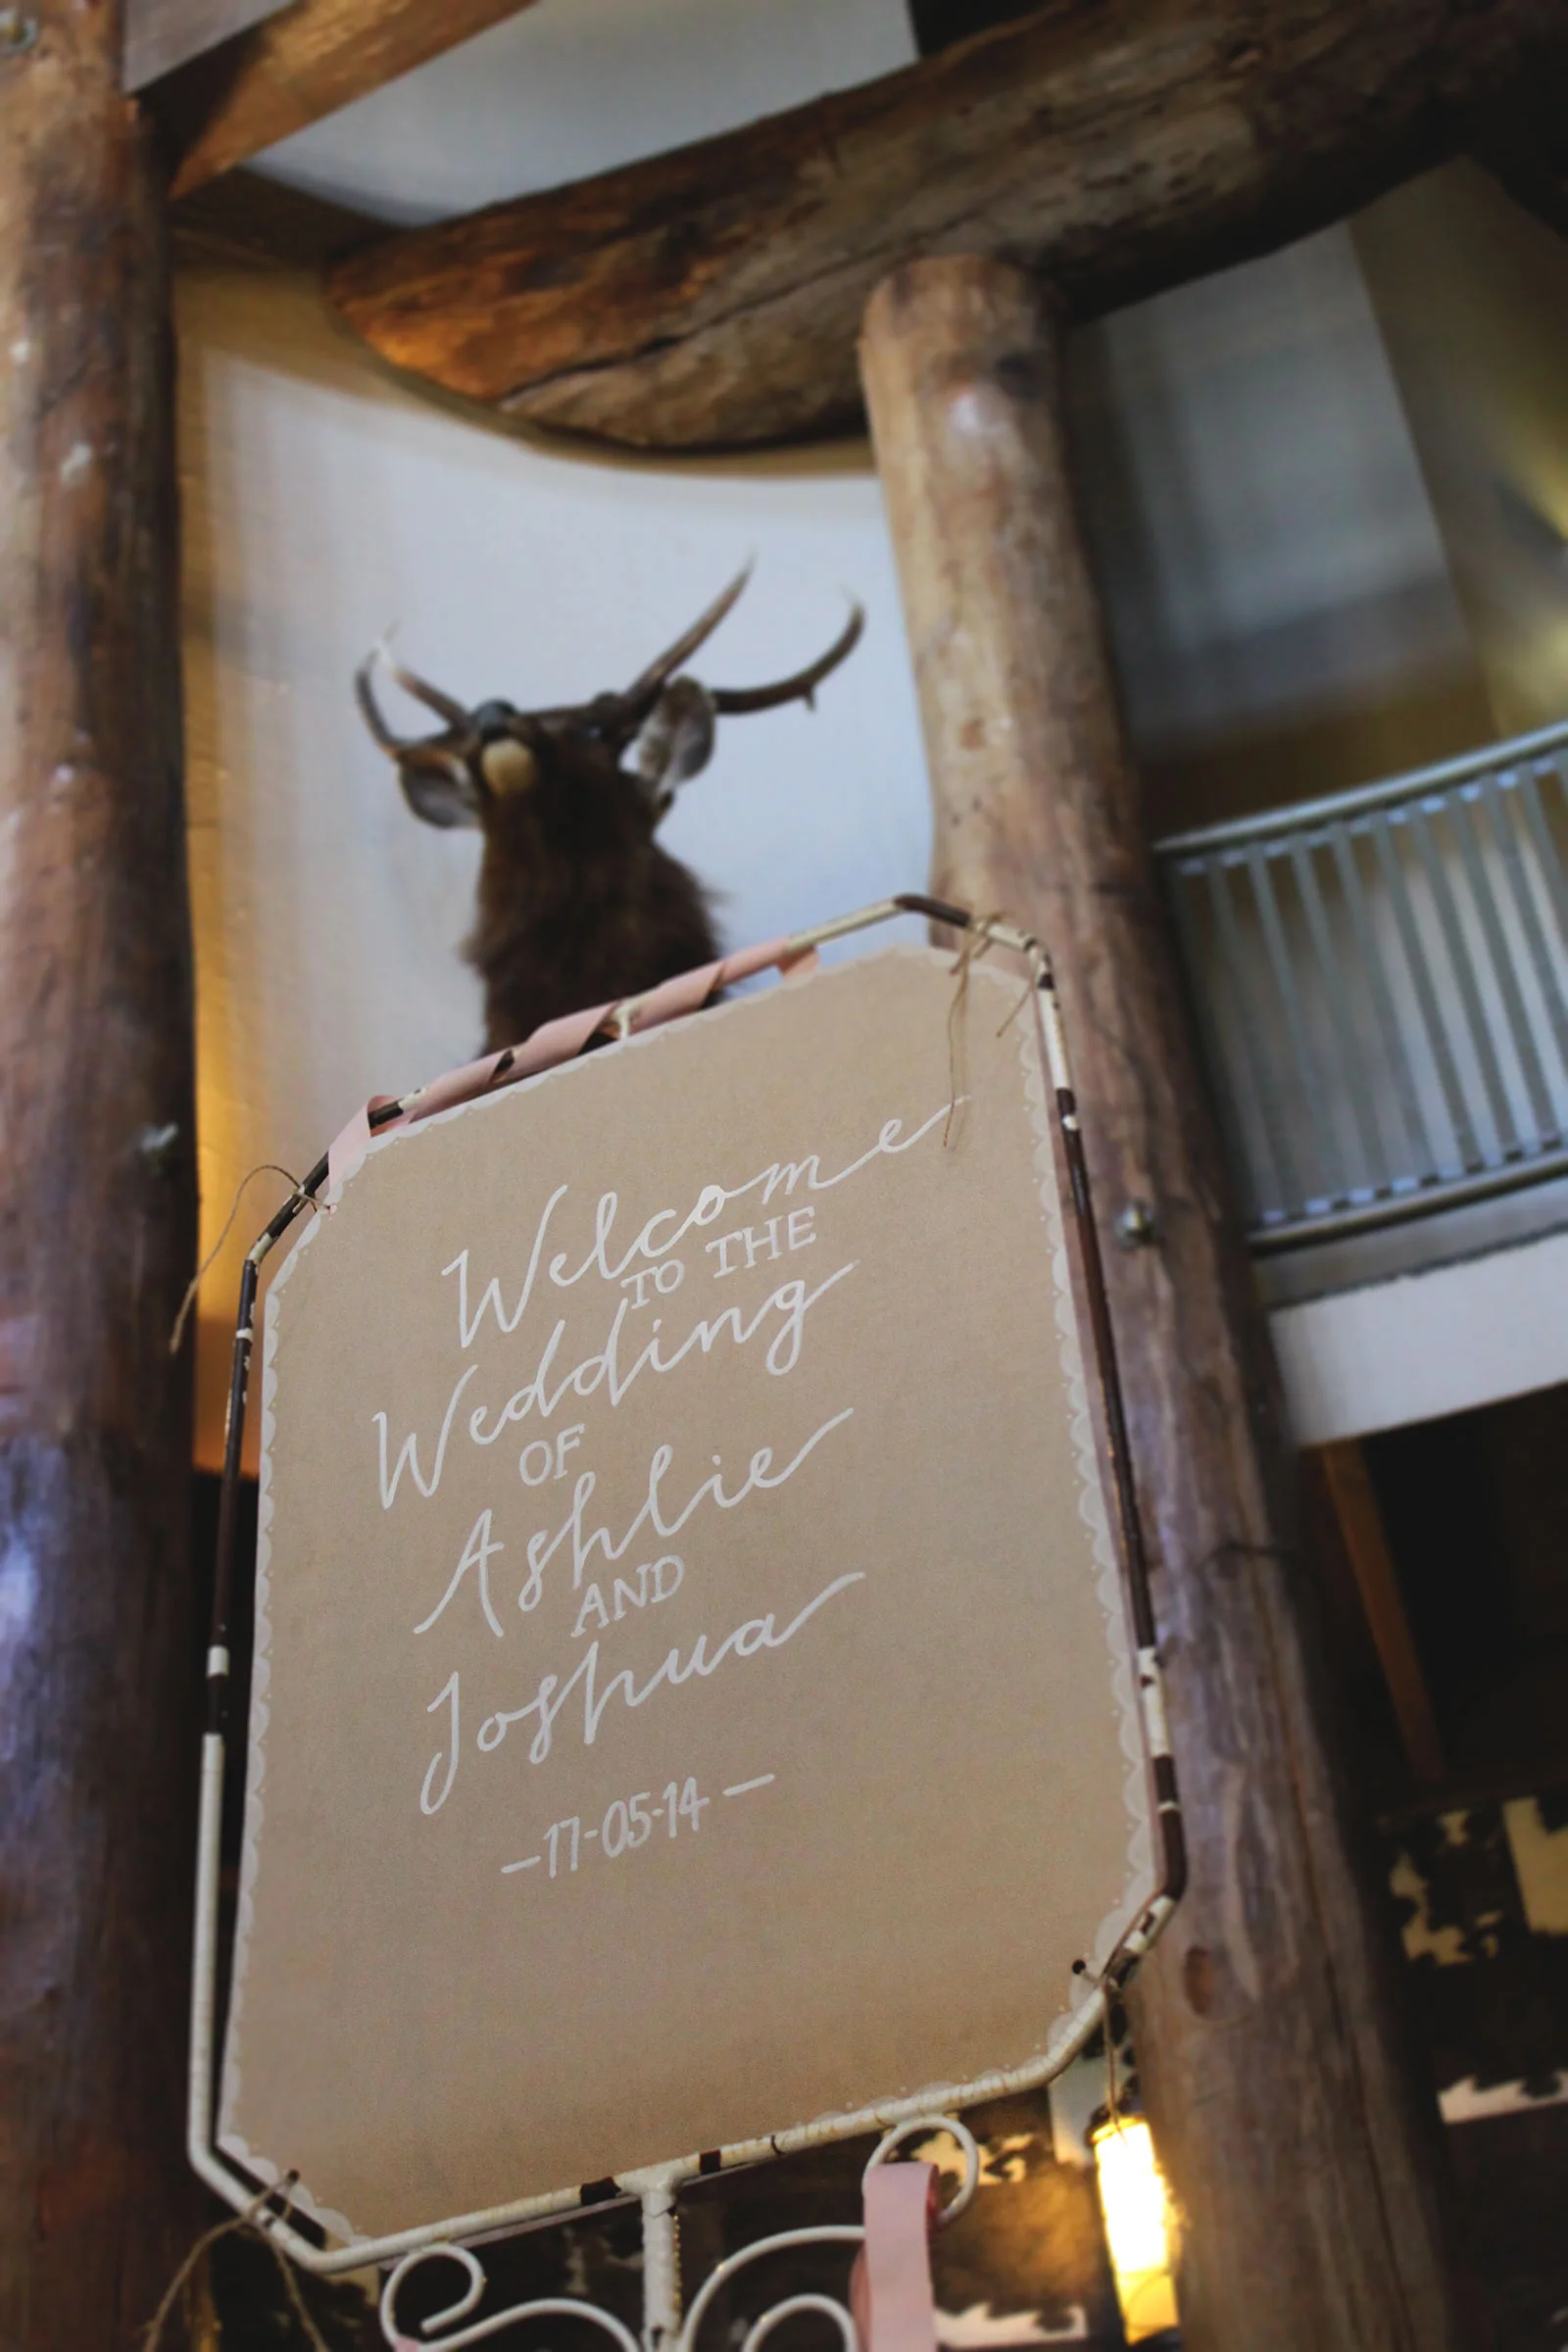 Welcome
TO THE
Wedding
OF
Ashlie
AND
Joshua
-17-05-14-